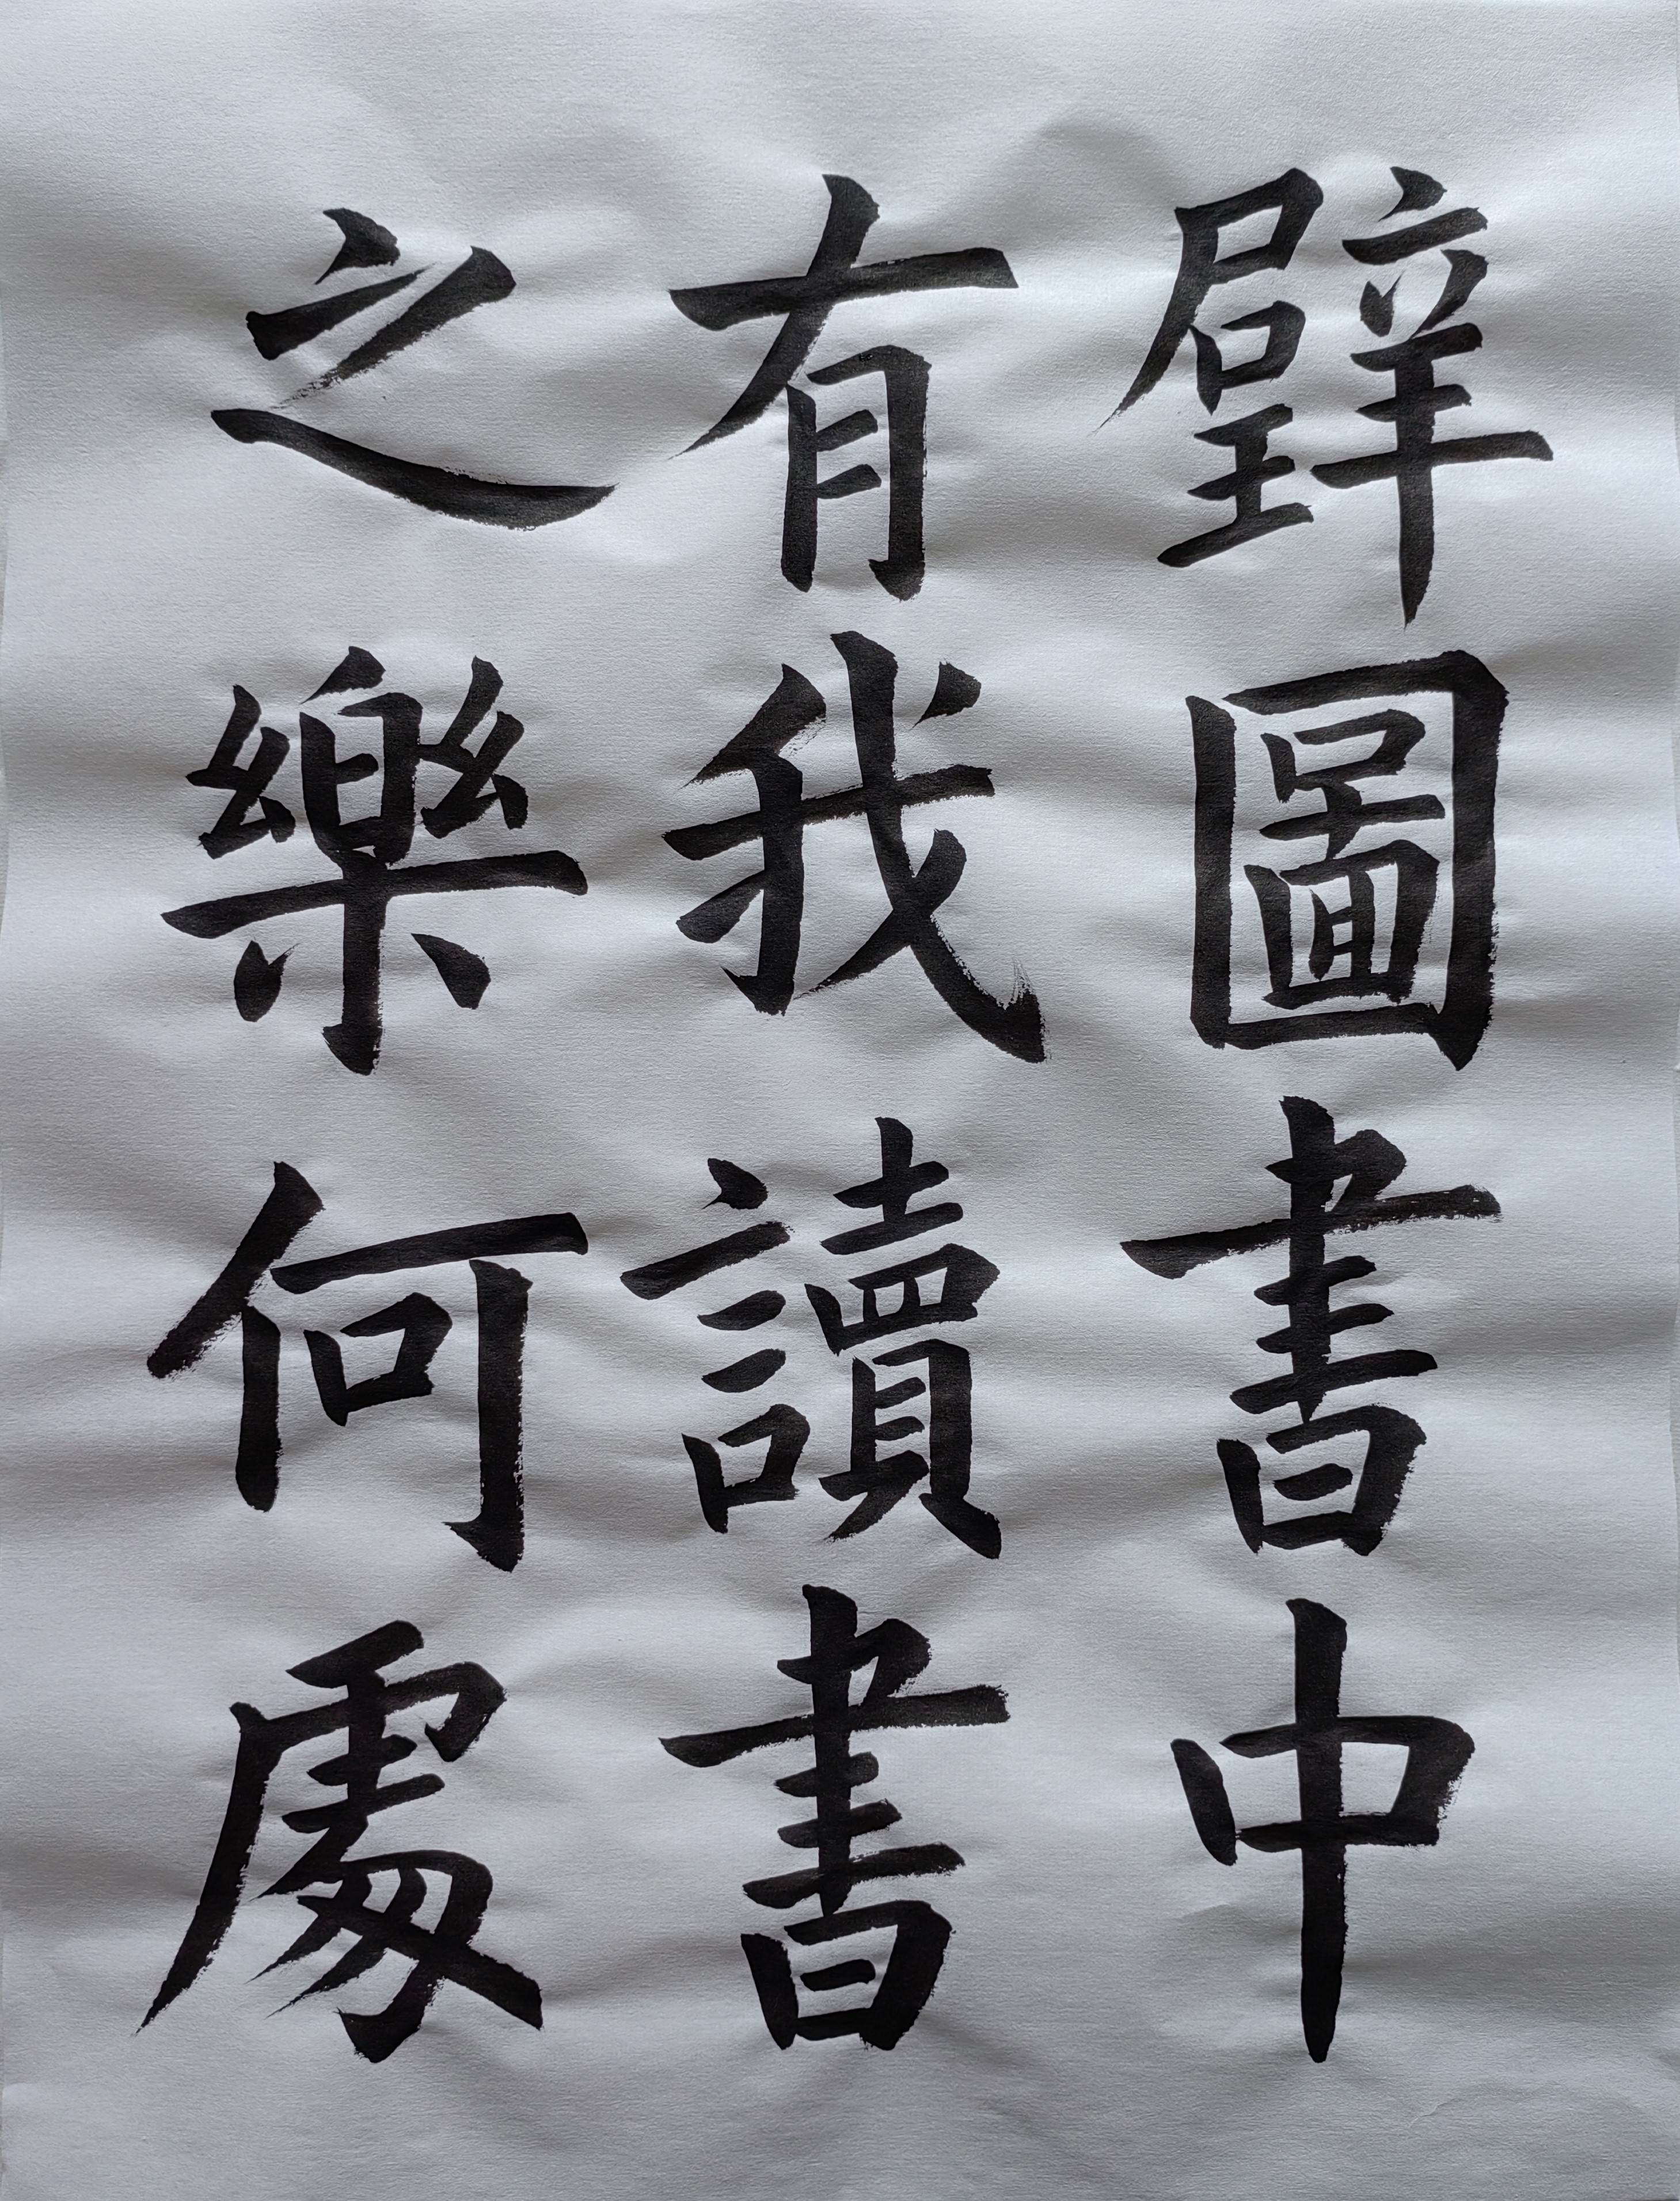 壁圖書中
有我讀書
之樂何處